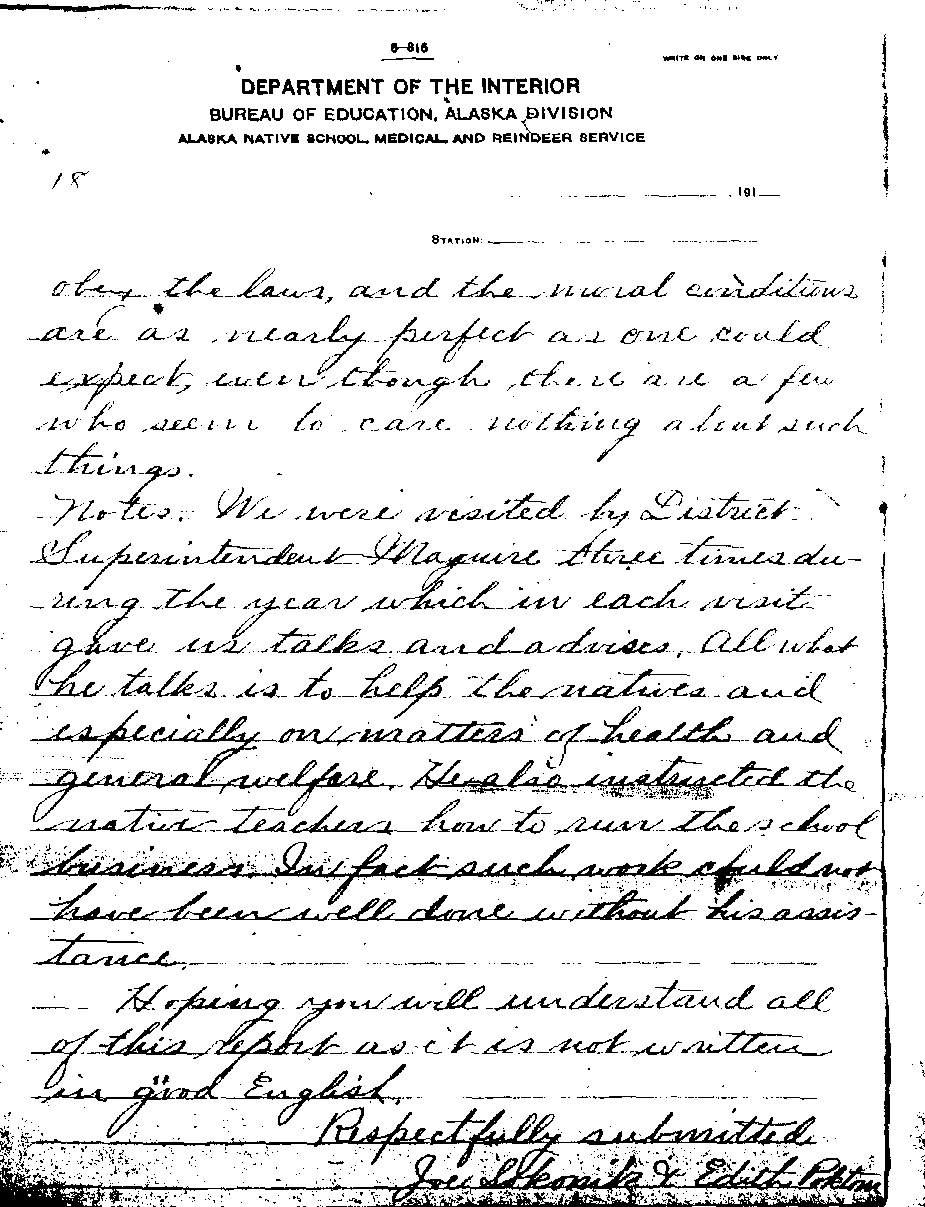 6-816
WRITE ON ONE SIDE ONLY
DEPARTMENT OF THE INTERIOR
BUREAU OF EDUCATION, ALASKA DIVISION
ALASKA NATIVE SCHOOL, MEDICAL, AND REINDEER SERVICE
18
, 191
STATION:
obey the laws, and the moral conditions
are as nearly perfect as one could
expect, even though there are a few
who seem to care nothing about such
things.
Notes. We were visited by District
Superintendent Maguire three times du-
ring the year which in each visit
gave us talks and advises. All what
he talks is to help the natives and
especially on matters of health and
general welfare. He also instructed the
native teachers how to run the school
business. In fact such work could not
have been well done without his assis-
tance.
Hoping you will understand all
of this report as it is not written
in good English.
Respectfully submitted
Joe & Edith